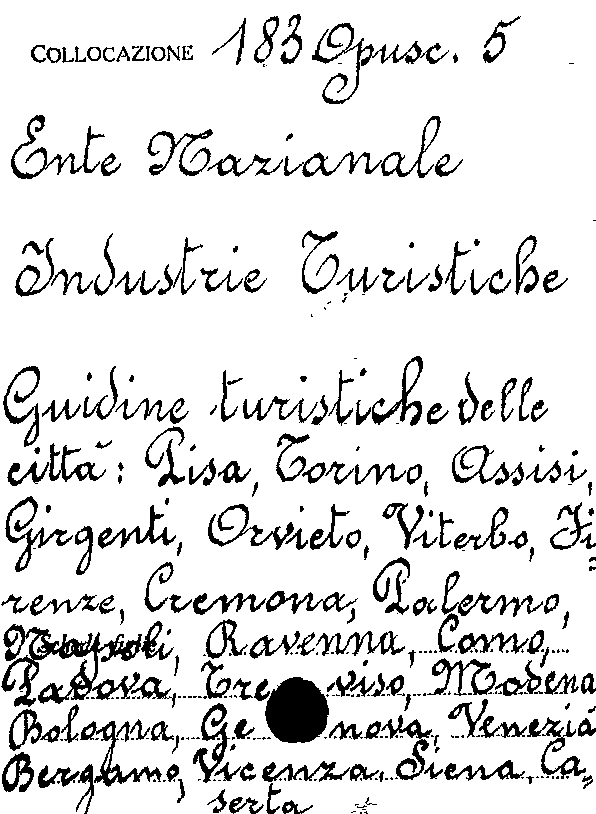 COLLOCAZIONE 183 Opusc. 5
Ente Nazianale
Industrie Turistiche
Guidine turistiche delle
città: Pisa, Torino, Assisi,
Girgenti, Orvieto, Viterbo, Fi=
renze, Cremona, Palermo,
Napoli, Ravenna, Como,
Padova, Treviso, Modena
Bologna, Genova, Venezia
Bergamo, Vicenza, Siena, Ca=
serta